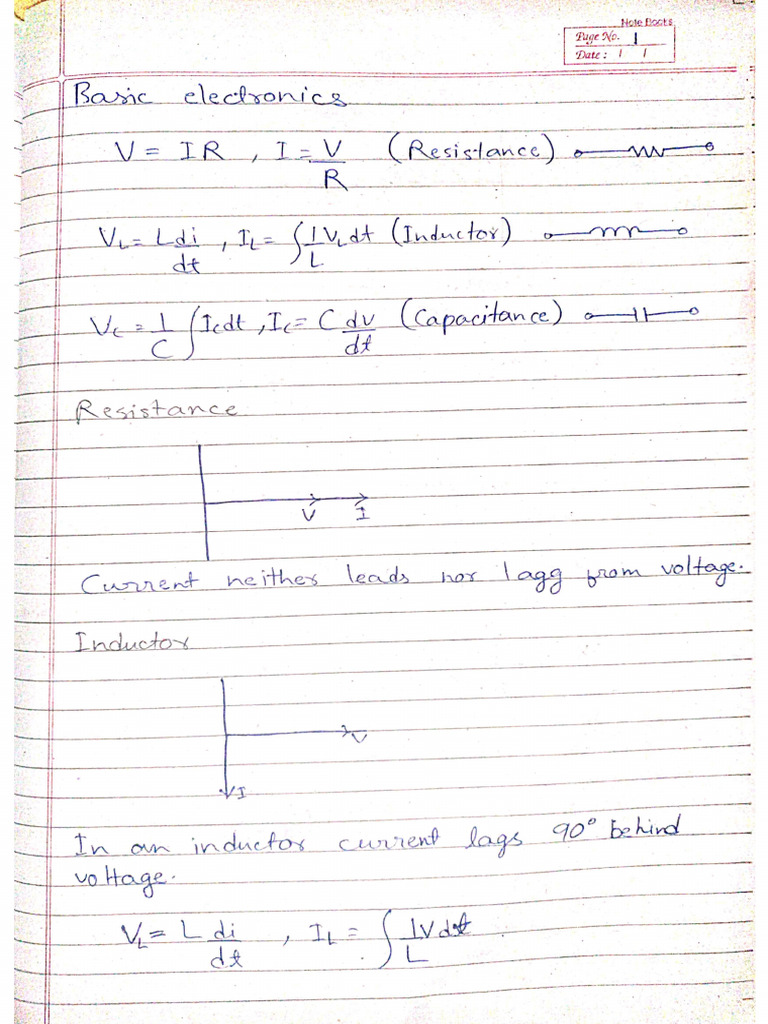 Note Books
Page No. 1
Date : / /
Basic electronics
V = IR , I = V/R (Resistance)
V_L = L di/dt , I_L = ∫ 1/L V_L dt (Inductor)
V_C = 1/C ∫ I_C dt , I_C = C dv/dt (Capacitance)
Resistance
V I
Current neither leads nor lagg from voltage.
Inductor
V
I
In an inductor current lags 90° behind
voltage.
V_L = L di/dt , I_L = ∫ 1/L V dt